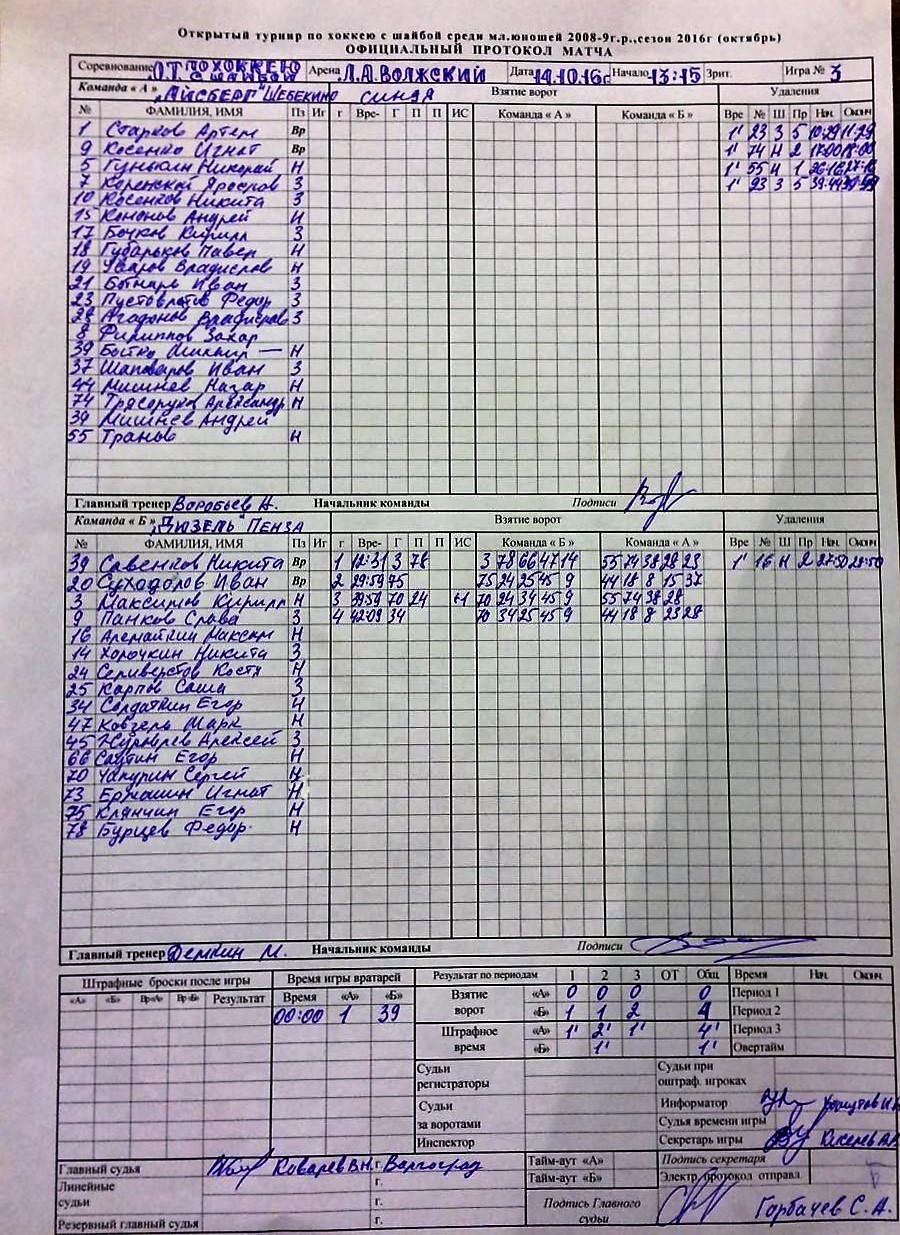 Открытый турнир по хоккею с шайбой среди мл.юношей 2008-9г.р.,сезон 2016г (октябрь)
ОФИЦИАЛЬНЫЙ ПРОТОКОЛ МАТЧА
Соревнование О.Т. ПО ХОККЕЮ С ШАЙБОЙ Арена Л.А. ВОЛЖСКИЙ Дата 14.10.16г Начало 13:15 Зрит. Игра № 3
Команда « А » "АЙСБЕРГ" ШЕБЕКИНО СИНДА Взятие ворот Удаления
№ ФАМИЛИЯ, ИМЯ Пз Иг г Вре- Г П П ИС Команда « А » Команда « Б » Вре № Ш Пр Нач Оконч
1 Старков Артем Вр 1' 23 3 5 10:29 11:29
9 Косенко Игнат Вр 1' 74 Н 2 17:00 18:00
5 Николай Н 1' 55 Н 1 26:16
7 З 1' 23 3 5 39:44
10 Косенков Никита З
15 Кононов Андрей Н
17 Бочков Кирилл З
18 Губарьков Павел Н
19 Уваров Владислав Н
21 Иван З
23 Федор З
28 Агафонов Владислав З
8 Филиппов Захар
39 — Н
37 Шаповалов Иван З
44 Мишнев Назар Н
74 Александр Н
39 Мишнев Андрей
55 Транов Н
Главный тренер Воробьев А. Начальник команды Подписи
Команда « Б » "ДИЗЕЛЬ" ПЕНЗА Взятие ворот Удаления
№ ФАМИЛИЯ, ИМЯ Пз Иг г Вре- Г П П ИС Команда « Б » Команда « А » Вре № Ш Пр Нач Оконч
39 Савенков Никита Вр 1 12:31 3 78 3 78 66 47 14 55 74 38 28 23 1' 16 Н 2 27:50 28:50
20 Суходолов Иван Вр 2 29:59 75 75 24 25 45 9 44 18 8 15 37
3 Максимов Кирилл Н 3 39:59 70 24 +1 70 24 34 45 9 55 74 38 28
9 Панков Слава З 4 42:09 34 70 34 25 45 9 44 18 8 23 28
16 Максим Н
14 Хорочкин Никита З
24 Селиверстов Костя Н
25 Карпов Саша З
34 Солдаткин Егор Н
47 Ковзель Марк Н
45 Алексей З
66 Саутин Егор Н
70 Чапурин Сергей Н
73 Ермошин Игнат Н
75 Клянчин Егор Н
78 Бурцев Федор Н
Главный тренер Демкин М. Начальник команды Подписи
Штрафные броски после игры Время игры вратарей Результат по периодам 1 2 3 ОТ Общ Время Нач. Оконч.
«А» «Б» Вр«А» Вр«Б» Результат Время «А» «Б» Взятие ворот «А» 0 0 0 0 Период 1
00:00 1 39 «Б» 1 1 2 4 Период 2
Штрафное время «А» 1' 2' 1' 4' Период 3
«Б» 1' 1' Овертайм
Судьи регистраторы Судьи при оштраф. игроках
Судьи за воротами Информатор
Судья времени игры
Инспектор Секретарь игры
Главный судья Ковалев В.Н. г. Волгоград Тайм-аут «А» Подпись секретаря
Линейные судьи г. Тайм-аут «Б» Электр. протокол отправл.
г. Подпись Главного судьи Горбачев С. А.
Резервный главный судья г.